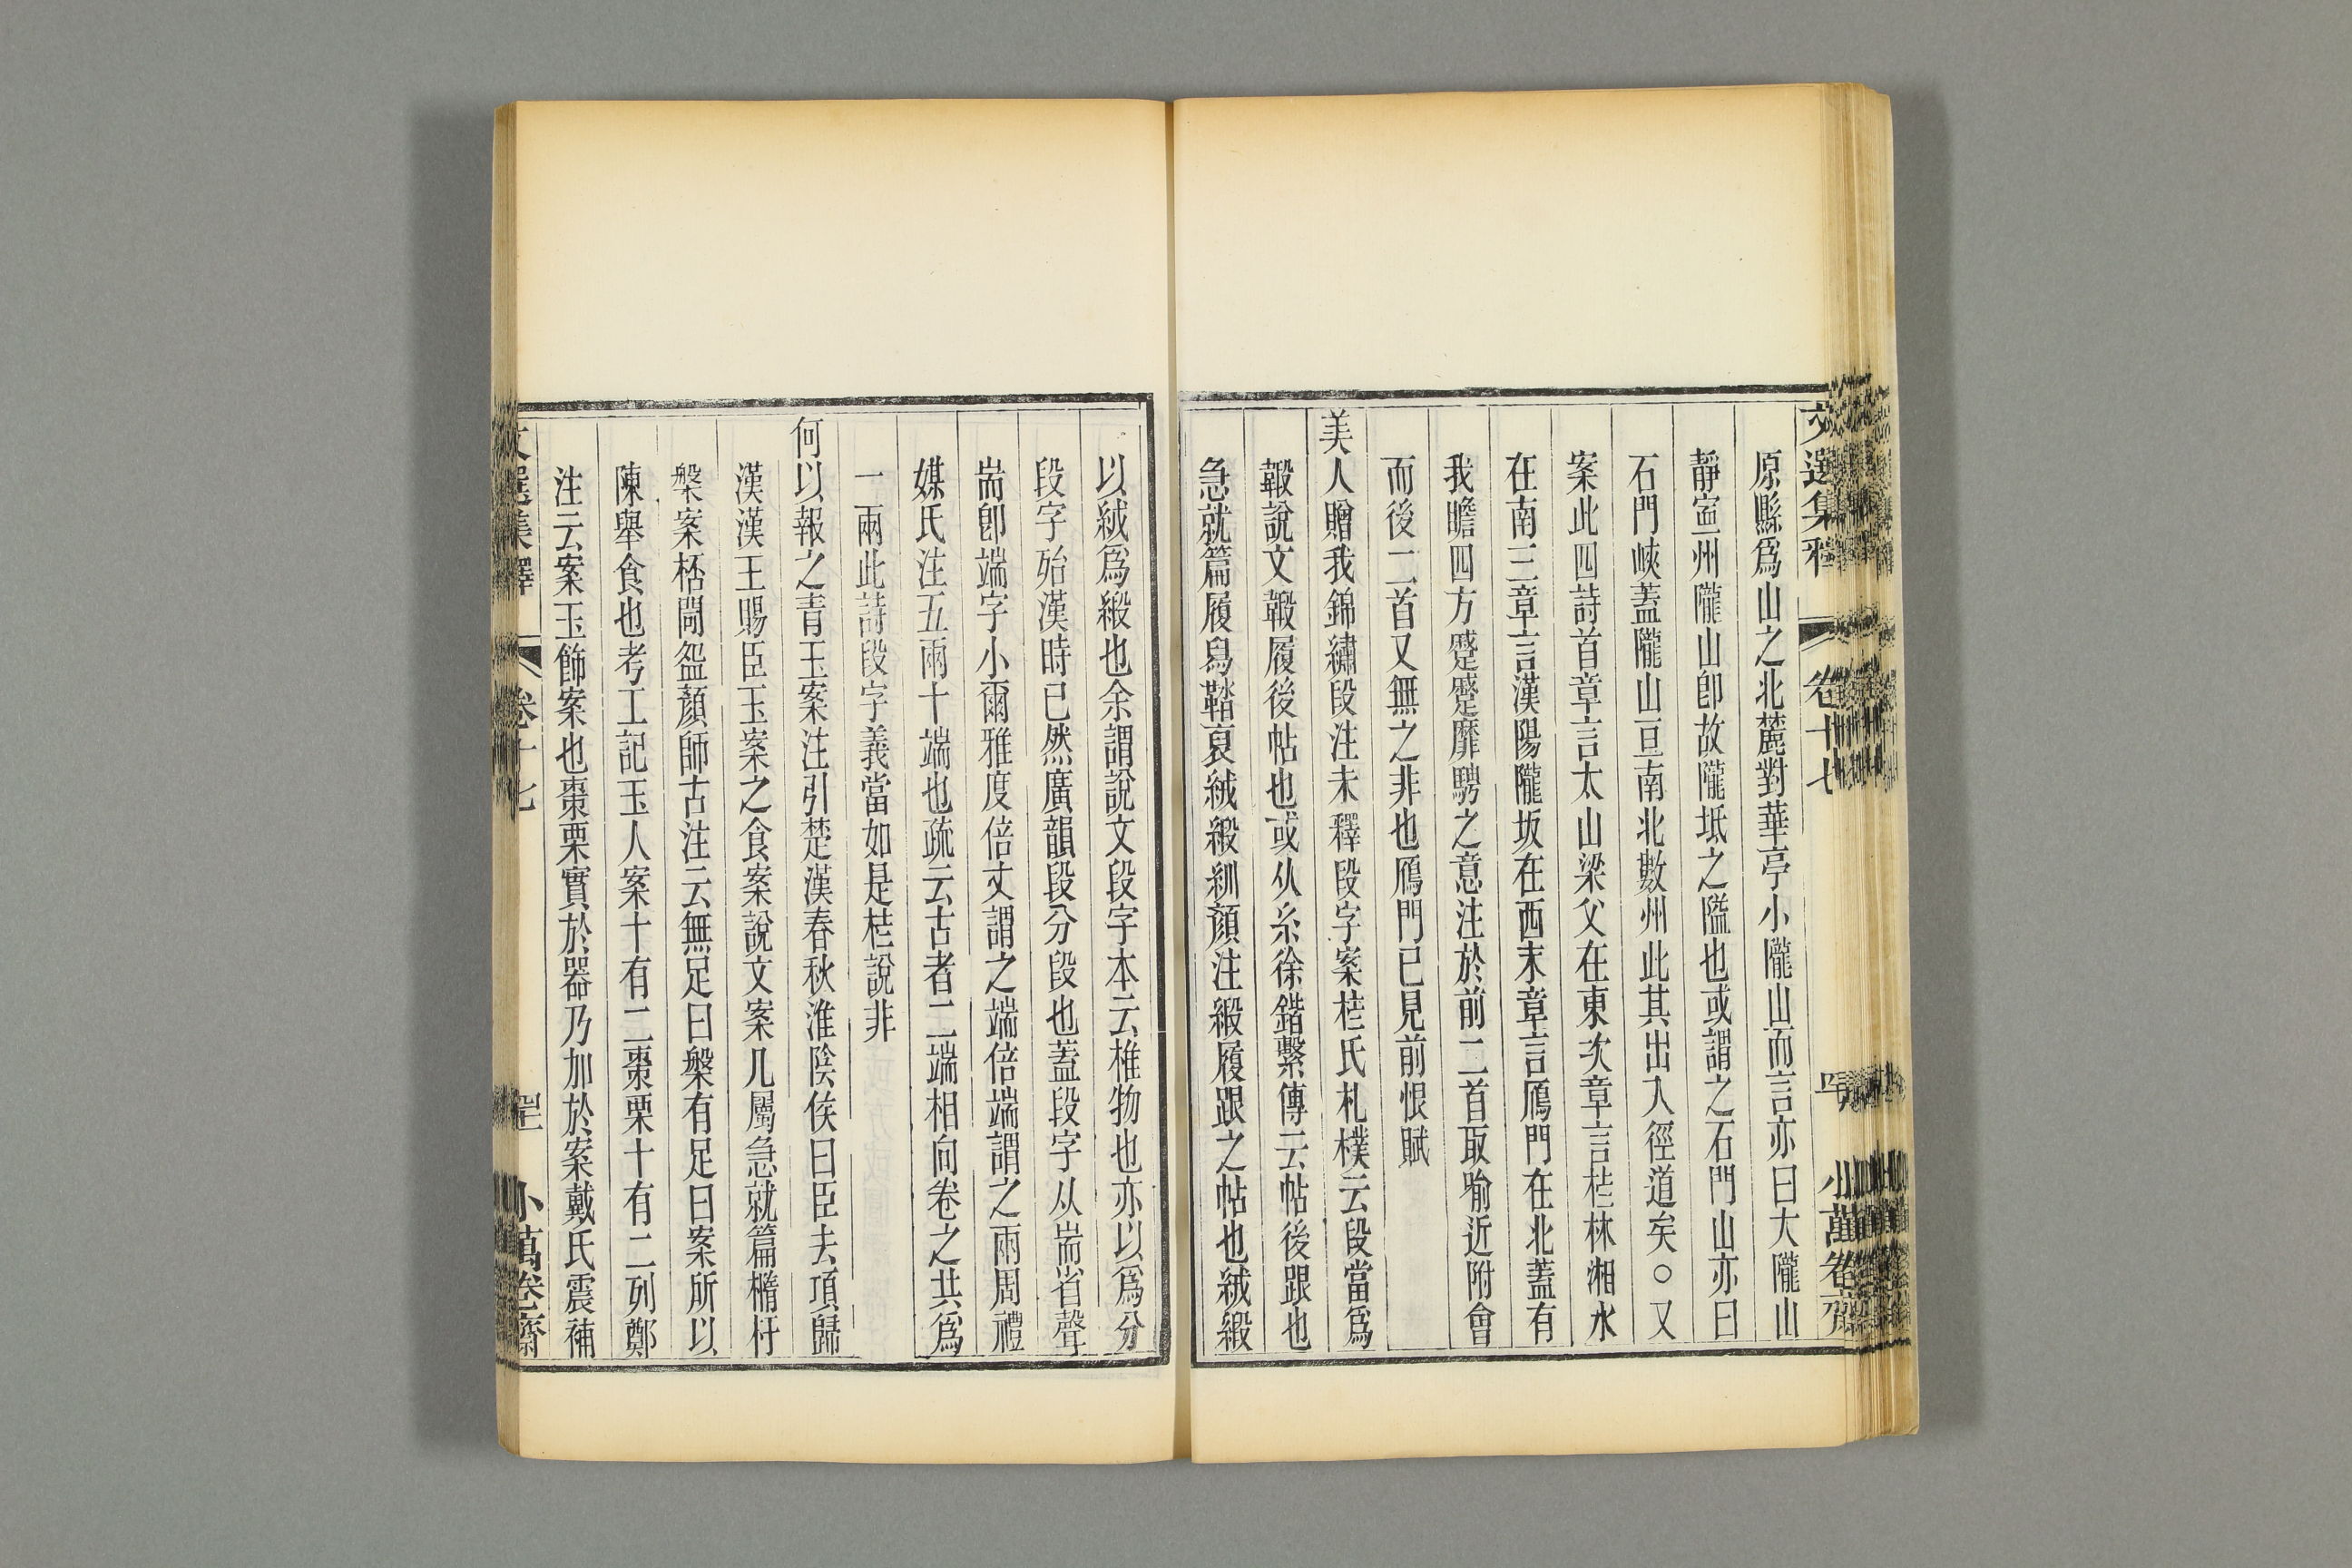 文選集釋 卷十七 小萬卷齋
原縣爲山之北麓對華亭小隴山而言亦曰大隴山
靜寍州隴山卽故隴坻之隘也或謂之石門山亦曰
石門峽蓋隴山亘南北數州此其出入徑道矣○又
案此四詩首章言太山梁父在東次章言桂林湘水
在南三章言漢陽隴坂在西末章言鴈門在北蓋有
我瞻四方蹙蹙靡騁之意注於前二首取喻近附會
而後二首又無之非也鴈門已見前恨賦
美人贈我錦繡段注未釋段字案桂氏札樸云段當爲
鞎說文鞎履後帖也或从糸徐鍇繫傳云帖後跟也
急就篇履舄鞜裒絨緞紃顏注緞履跟之帖也絨緞
以絨爲緞也余謂說文段字本云椎物也亦以爲分
段字殆漢時已然廣韻段分段也蓋段字从耑省聲
耑卽端字小爾雅度倍丈謂之端倍端謂之兩周禮
媒氏注五兩十端也疏云古者二端相向卷之共爲
一兩此詩段字義當如是桂說非
何以報之青玉案注引楚漢春秋淮陰侯曰臣去項歸
漢漢王賜臣玉案之食案說文案几屬急就篇橢杅
槃案桮閜盌顏師古注云無足曰槃有足曰案所以
陳舉食也考工記玉人案十有二棗栗十有二列鄭
注云案玉飾案也棗栗實於器乃加於案戴氏震補
文選集釋 卷十七 小萬卷齋